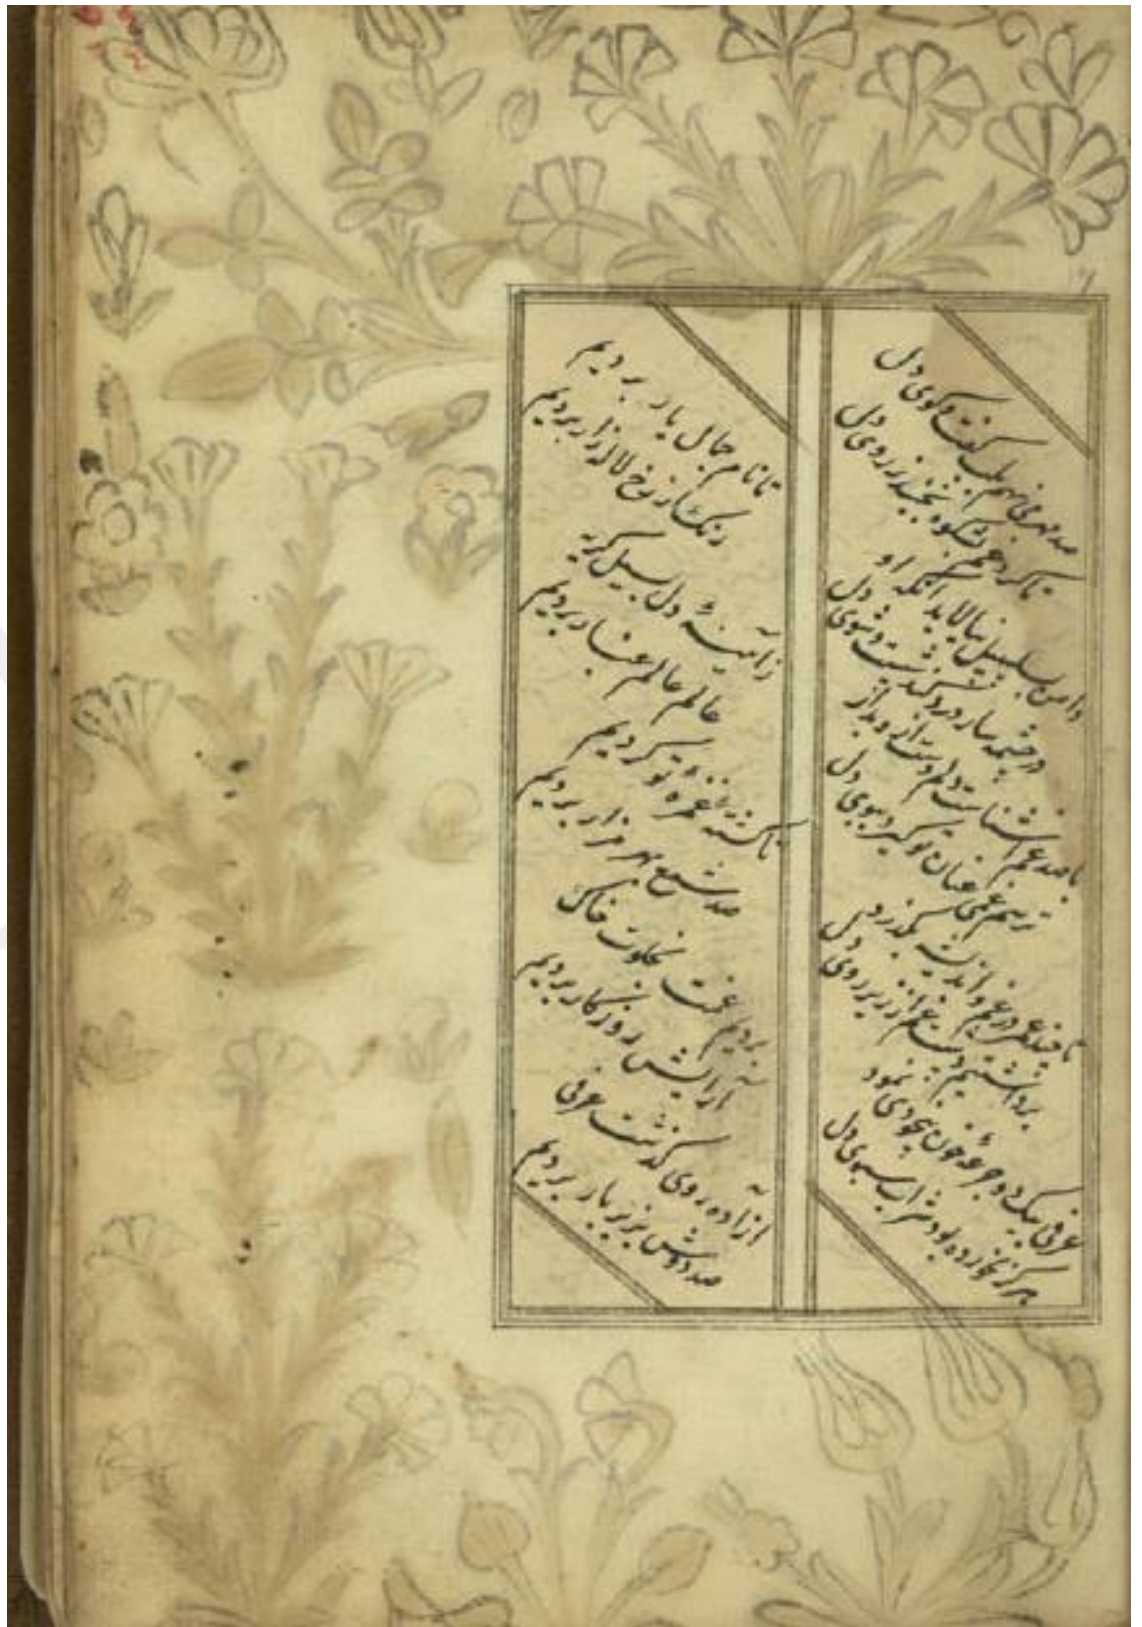 صد مهر نهم بلب گفت و کوی دل
تا کرد غم شکوه نخیزد ز روی دل
دامن بسلسبیل نیالاید آنکه او
در چشمه سار درد گذشت و شوی دل
با صد غم آشناست دلم دست ازو بدار
ترسم غمی عنان تو گیرد ببوی دل
تا چند عمر در غم و اندیشه بگذرد
برداشتیم دست غم از زیر روی دل
عرفی بیک دو جرعهٔ خون بیخودی نمود
هرگز نخورده بود شراب سبوی دل
تا نام جمال یار بردیم
رنگ از رخ لاله زار بردیم
ز آئینهٔ دل بسیل گریه
عالم عالم غبار بردیم
تا کشتهٔ غمزهٔ تو گردیم
صد شمع بهر مزار بردیم
بردیم غمت بخلوت خاک
آرایش روزگار بردیم
از آده روی گذشت عرفی
صد دوش بزیر بار بردیم